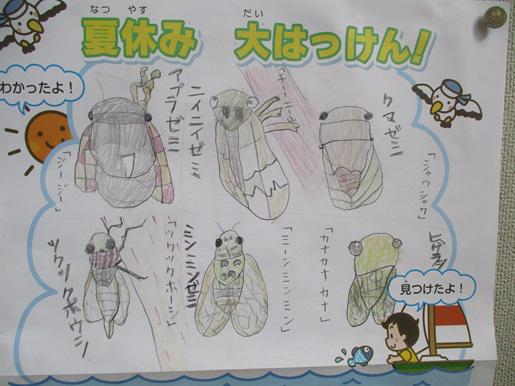 なつやす
夏休み
だい
大はっけん!
わかったよ!
アブラゼミ
「ジージー」
ニイニイゼミ
「チィーニィー」
クマゼミ
「シャワシャワ」
ツクツクボウシ
「ツクツクホーシ」
ミンミンゼミ
「ミーンミンミン」
「カナカナカナ」
ヒグラシ
見つけたよ!